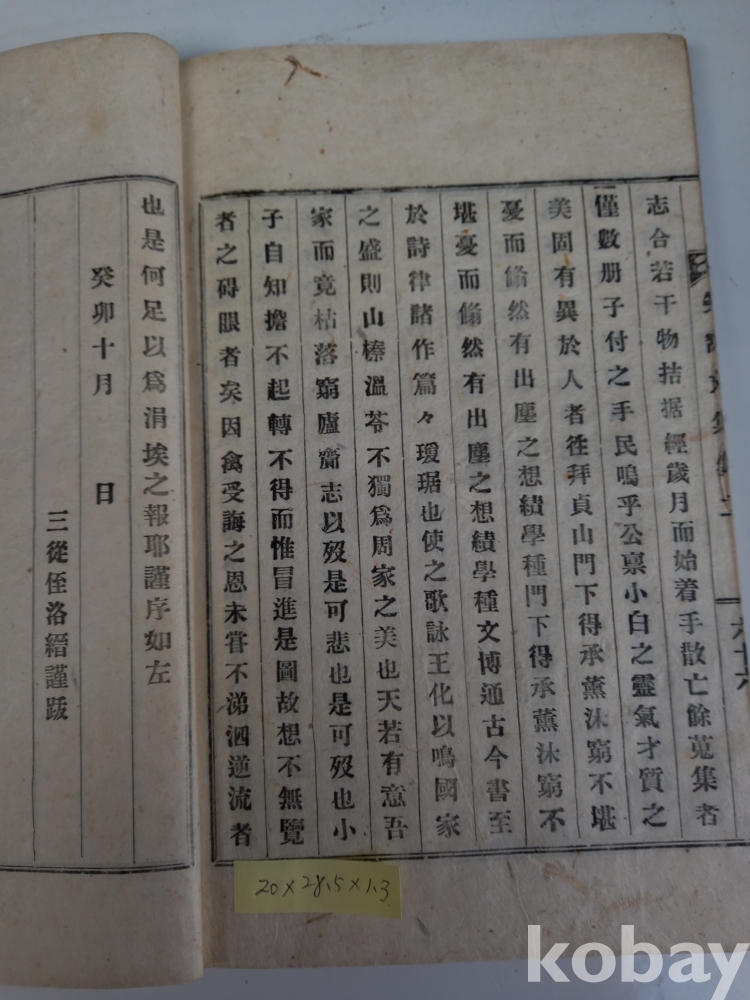 志合若干物拮据經歲月而始着手散亡餘蒐集者
僅數册子付之手民嗚乎公稟小白之靈氣才質之
美固有異於人者徃拜貞山門下得承薰沐窮不堪
憂而翛然有出塵之想績學種門下得承薰沐窮不
堪憂而翛然有出塵之想績學種文博通古今書至
於詩律諸作篇々瓊琚也使之歌詠王化以鳴國家
之盛則山榛溫苓不獨爲周家之美也天若有意吾
家而竟枯落窮廬齎志以歿是可悲也是可歿也小
子自知擔不起轉不得而惟冒進是圖故想不無覽
者之碍眼者矣因禽受誨之恩未甞不涕泗逆流者
也是何足以爲涓埃之報耶謹序如左
癸卯十月 日
三從侄洛縉謹跋
六十六
20×28.5×1.3
kobay